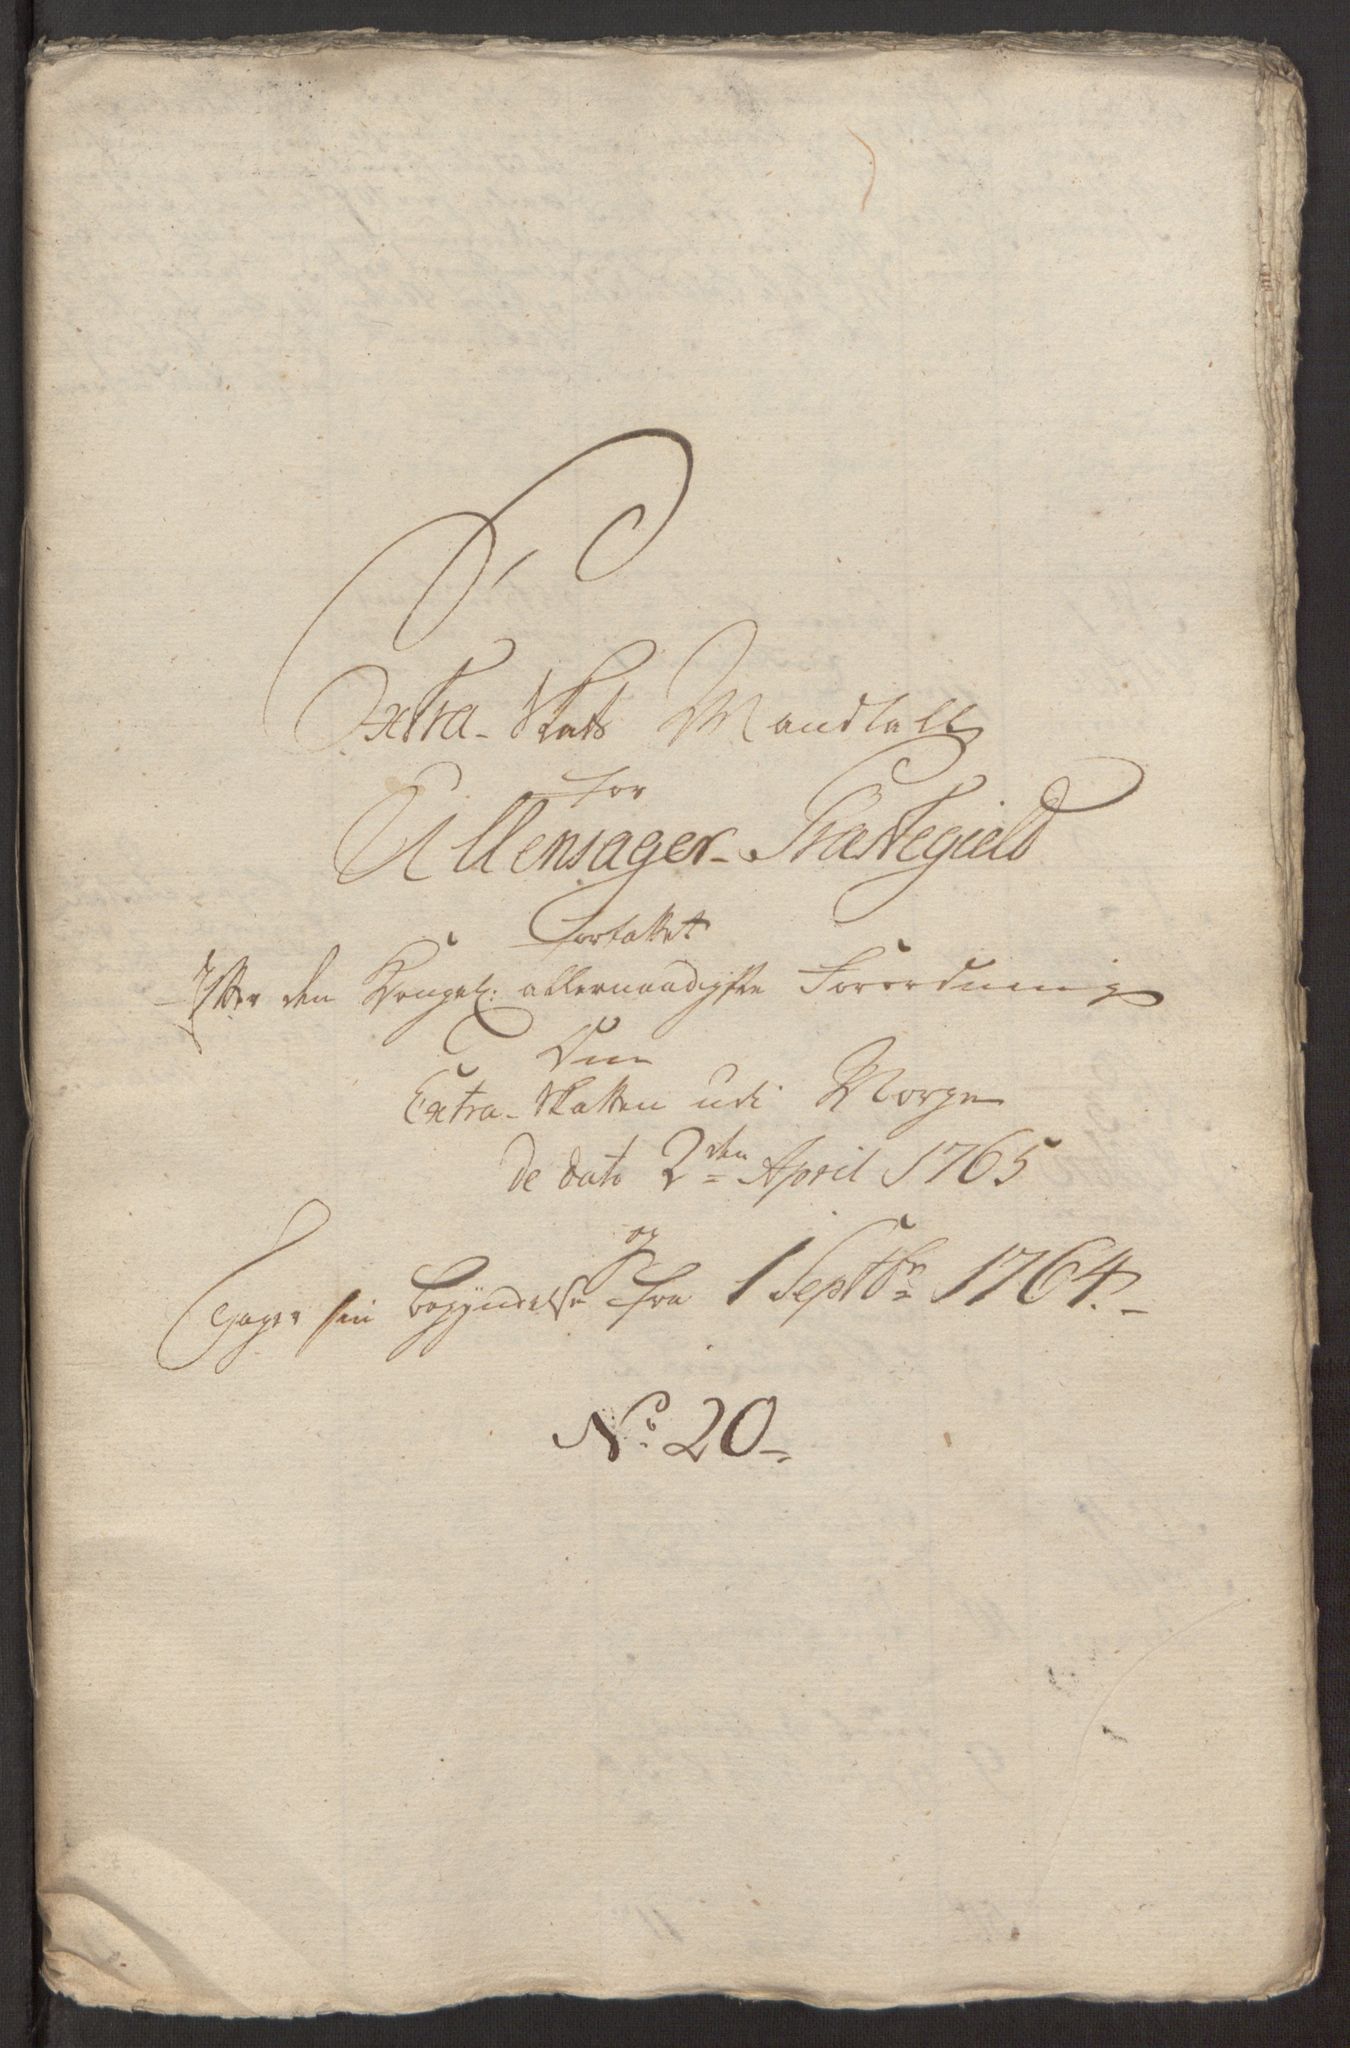 Extra-Skats Mandtall
for
Ullensager-Præstegield
forfattet
Efter den Kongel: allernaadigste Forordning
Om
Extra-Skatten udi Norge
de dato 2den April 1765
og
Tager sin begyndelse fra 1 Septbr 1764.-
No. 20-